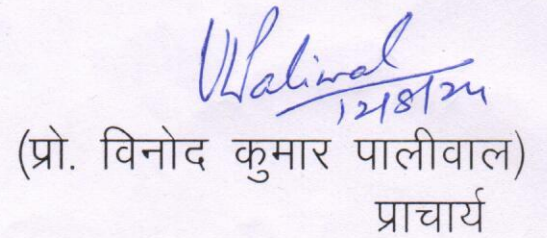 VKPaliwal
12/8/24
(प्रो. विनोद कुमार पालीवाल)
प्राचार्य